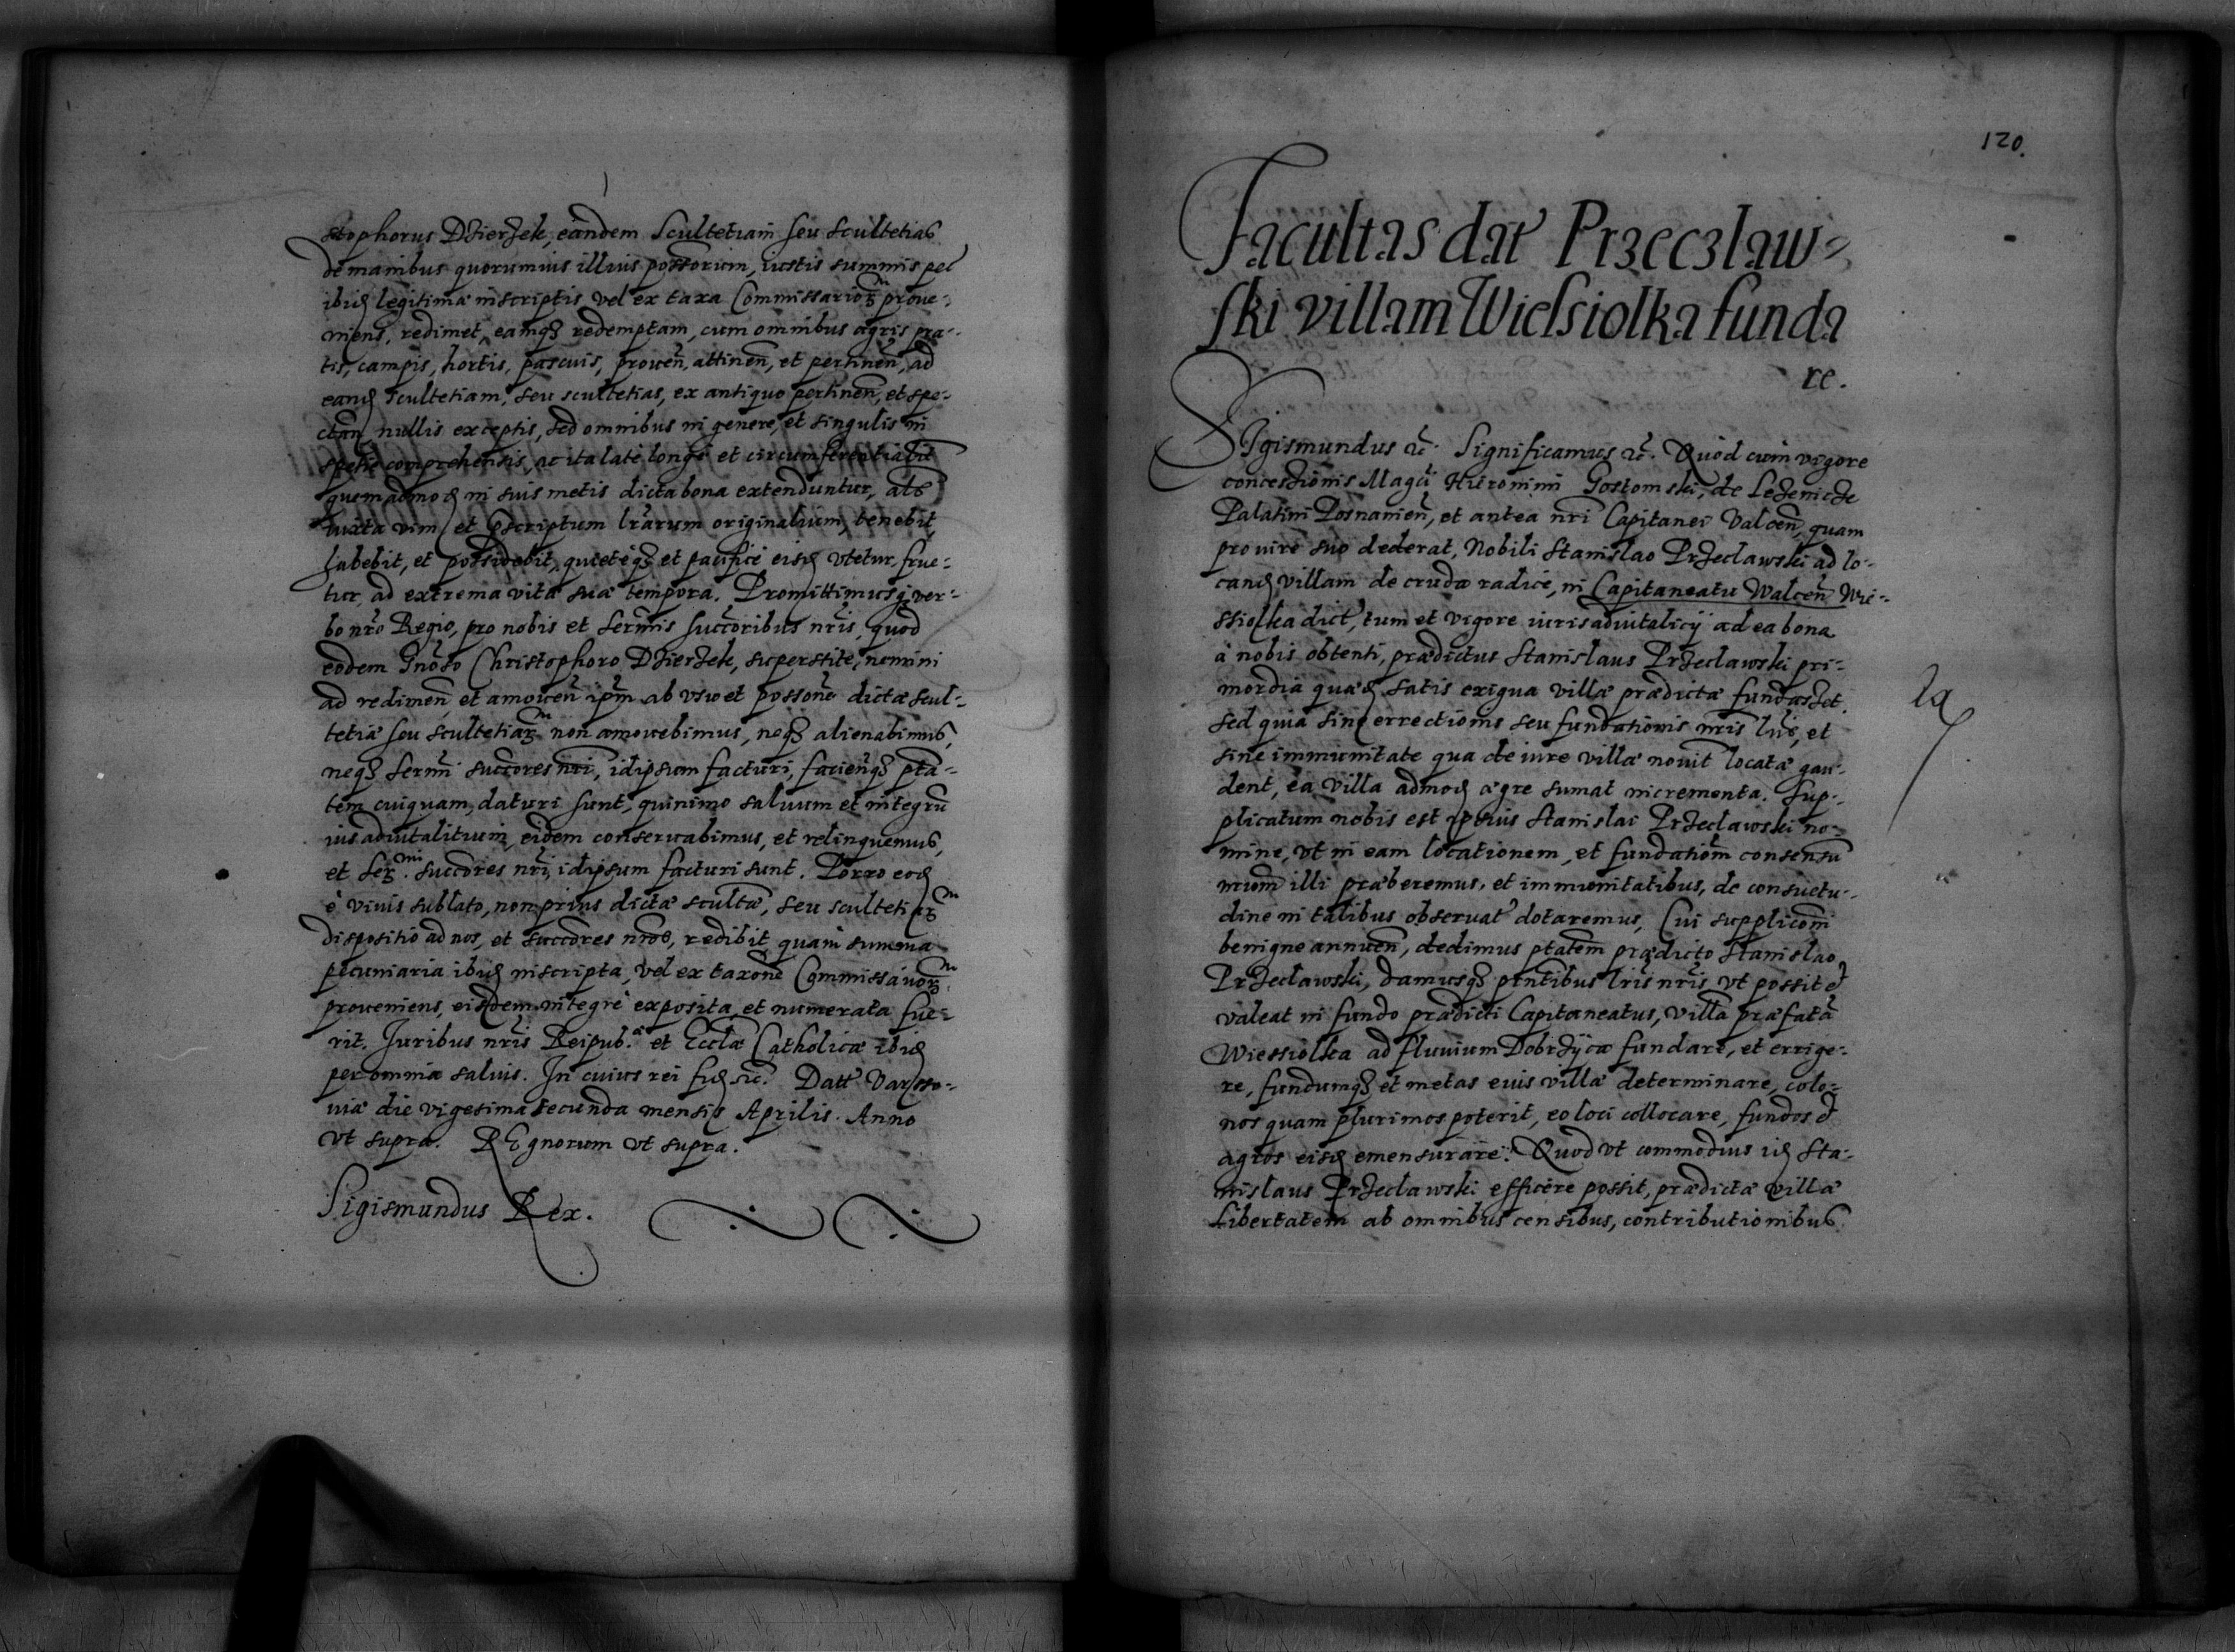 stophorus Dzierzek, eandem Scultetiam seu scultetias
de manibus quorumvis illius possorum, iustis summis pec
ibid legitime inscriptis, vel ex taxa Commissarior prove-
niens, redimet, eamq redemptam, cum omnibus agris pra-
tis, campis, hortis, pascuis, proven, attinen, et pertinen, ad
eand Scultetiam, seu scultetias, ex antiquo pertinen, et spe-
ctan, nullis exceptis, sed omnibus in genere, et singulis in
specie comprehensis, ac ita late longe et circumferentialit
quemadmod in suis metis dicta bona extenduntur, atq
iuxta vim et pscriptum lrarum originalium, tenebit,
habebit, et possidebit, quieteq et pacifice eisd utetur, frue-
tur, ad extrema vitæ suæ tempora. Promittimusq ver-
bo nro Regio, pro nobis et sermis succoribus nris, quod
eodem Gnoso Christophoro Dzierzek, superstite, nemini
ad redimen et amoven ipm ab usu et possone dictæ scul-
tetiæ seu scultetiar non amovebimus, neq alienabimus,
neq sermi succores nri, idipsum facturi, faciendq pta-
tem cuiquam, daturi sunt, quinimo saluum et integru
ius aduitalitium, eidem conseruabimus, et relinquemus,
et Ser.mi succores nri, idipsum facturi sunt. Porro eod
è viuis sublato, non prius dictæ scultæ, seu scultetiar
dispositio ad nos, et succores nros, redibit, quam summa
pecuniaria ibid inscripta, vel ex taxone Commissarior
proueniens, eisdem integrè exposita, et numerata fue-
rit. Juribus nris Reipub. et Ecclæ Catholicæ ibid
per omnia saluis. In cuius rei fid sic. Datt Varsso-
uiæ die vigesima secunda mensis Aprilis. Anno
ut supra. REgnorum ut supra.
Sigismundus Rex.
120.
Facultas dat Przeczlaw-
ski villam Wielsiolka funda
re.
SIgismundus etc. Significamus etc. Quod cum vigore
concessionis Magci Hieronimi Gostomski, de Lezenicze
Palatini Posnanien, et antea nri Capitanei Valcen, quam
pro iure suo dederat, Nobili Stanislao Przeclawski ad lo-
cand villam de cruda radice, in Capitaneatu Walcen Wie-
ssiolka dict, tum et vigore iuris aduitalicij ad ea bona
à nobis obtenti, prædictus Stanislaus Przeclawski pri-
mordia quæd satis exigua villæ prædictæ fundasset.
sed quia sine errectionis seu fundationis nris lris, et
sine immunitate qua de iure villæ novit locatæ gau-
dent, ea villa admod ægre sumat incrementa. Sup-
plicatum nobis est ipsius Stanislai Przeclawski no-
mine, ut in eam locationem, et fundationem consensu
nrum illi præberemus, et immunitatibus, de consuetu-
dine in talibus observat dotaremus, Cui suppliconi
benigne annuen, dedimus ptatem prædicto Stanislao
Przeclawski, damusq pntibus lris nris ut possit et
valeat in fundo prædicti Capitaneatus, villa præfata
Wiessiolka ad fluuium Dobrzyca fundare, et errige-
re, fundumq et metas euis villæ determinare, colo-
nos quam plurimos poterit, eo loci collocare, fundos et
agros eisd emensurare. Quod ut commodius id Sta-
nislaus Przeclawski efficere possit, prædictæ villæ
Libertatem ab omnibus censibus, contributionibus